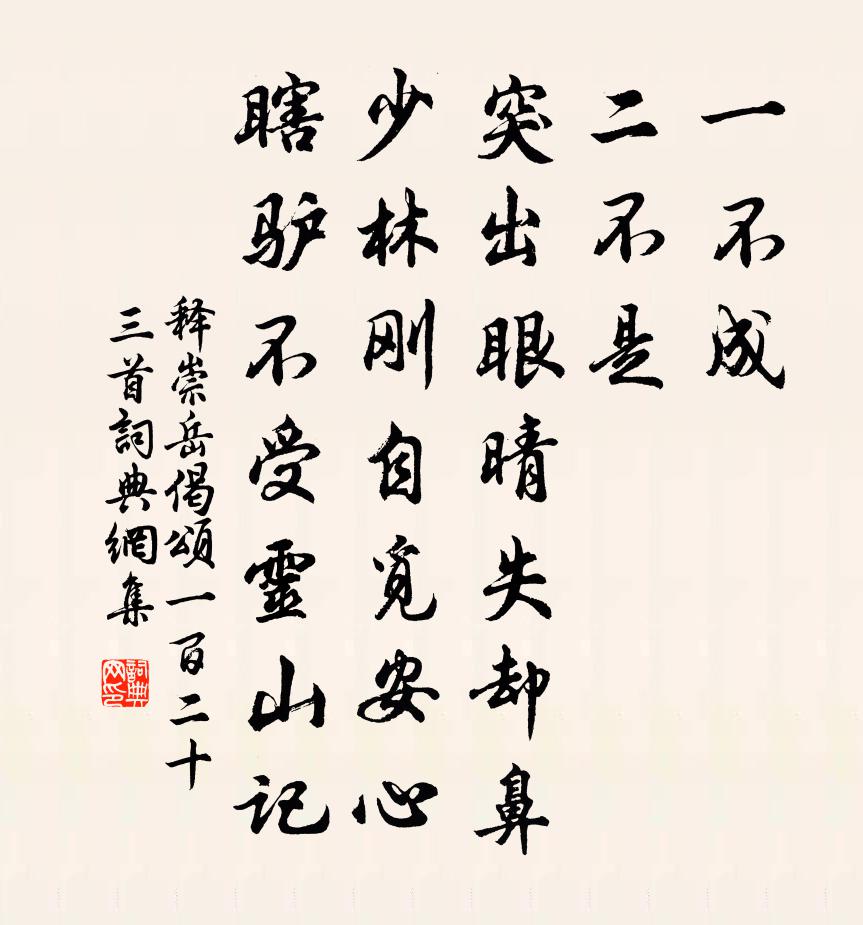 一不成
二不是
突出眼睛失却鼻
少林刚自觅安心
瞎驴不受靈山记
释崇岳偈颂一百二十
三首詞典網集
詞典
网印